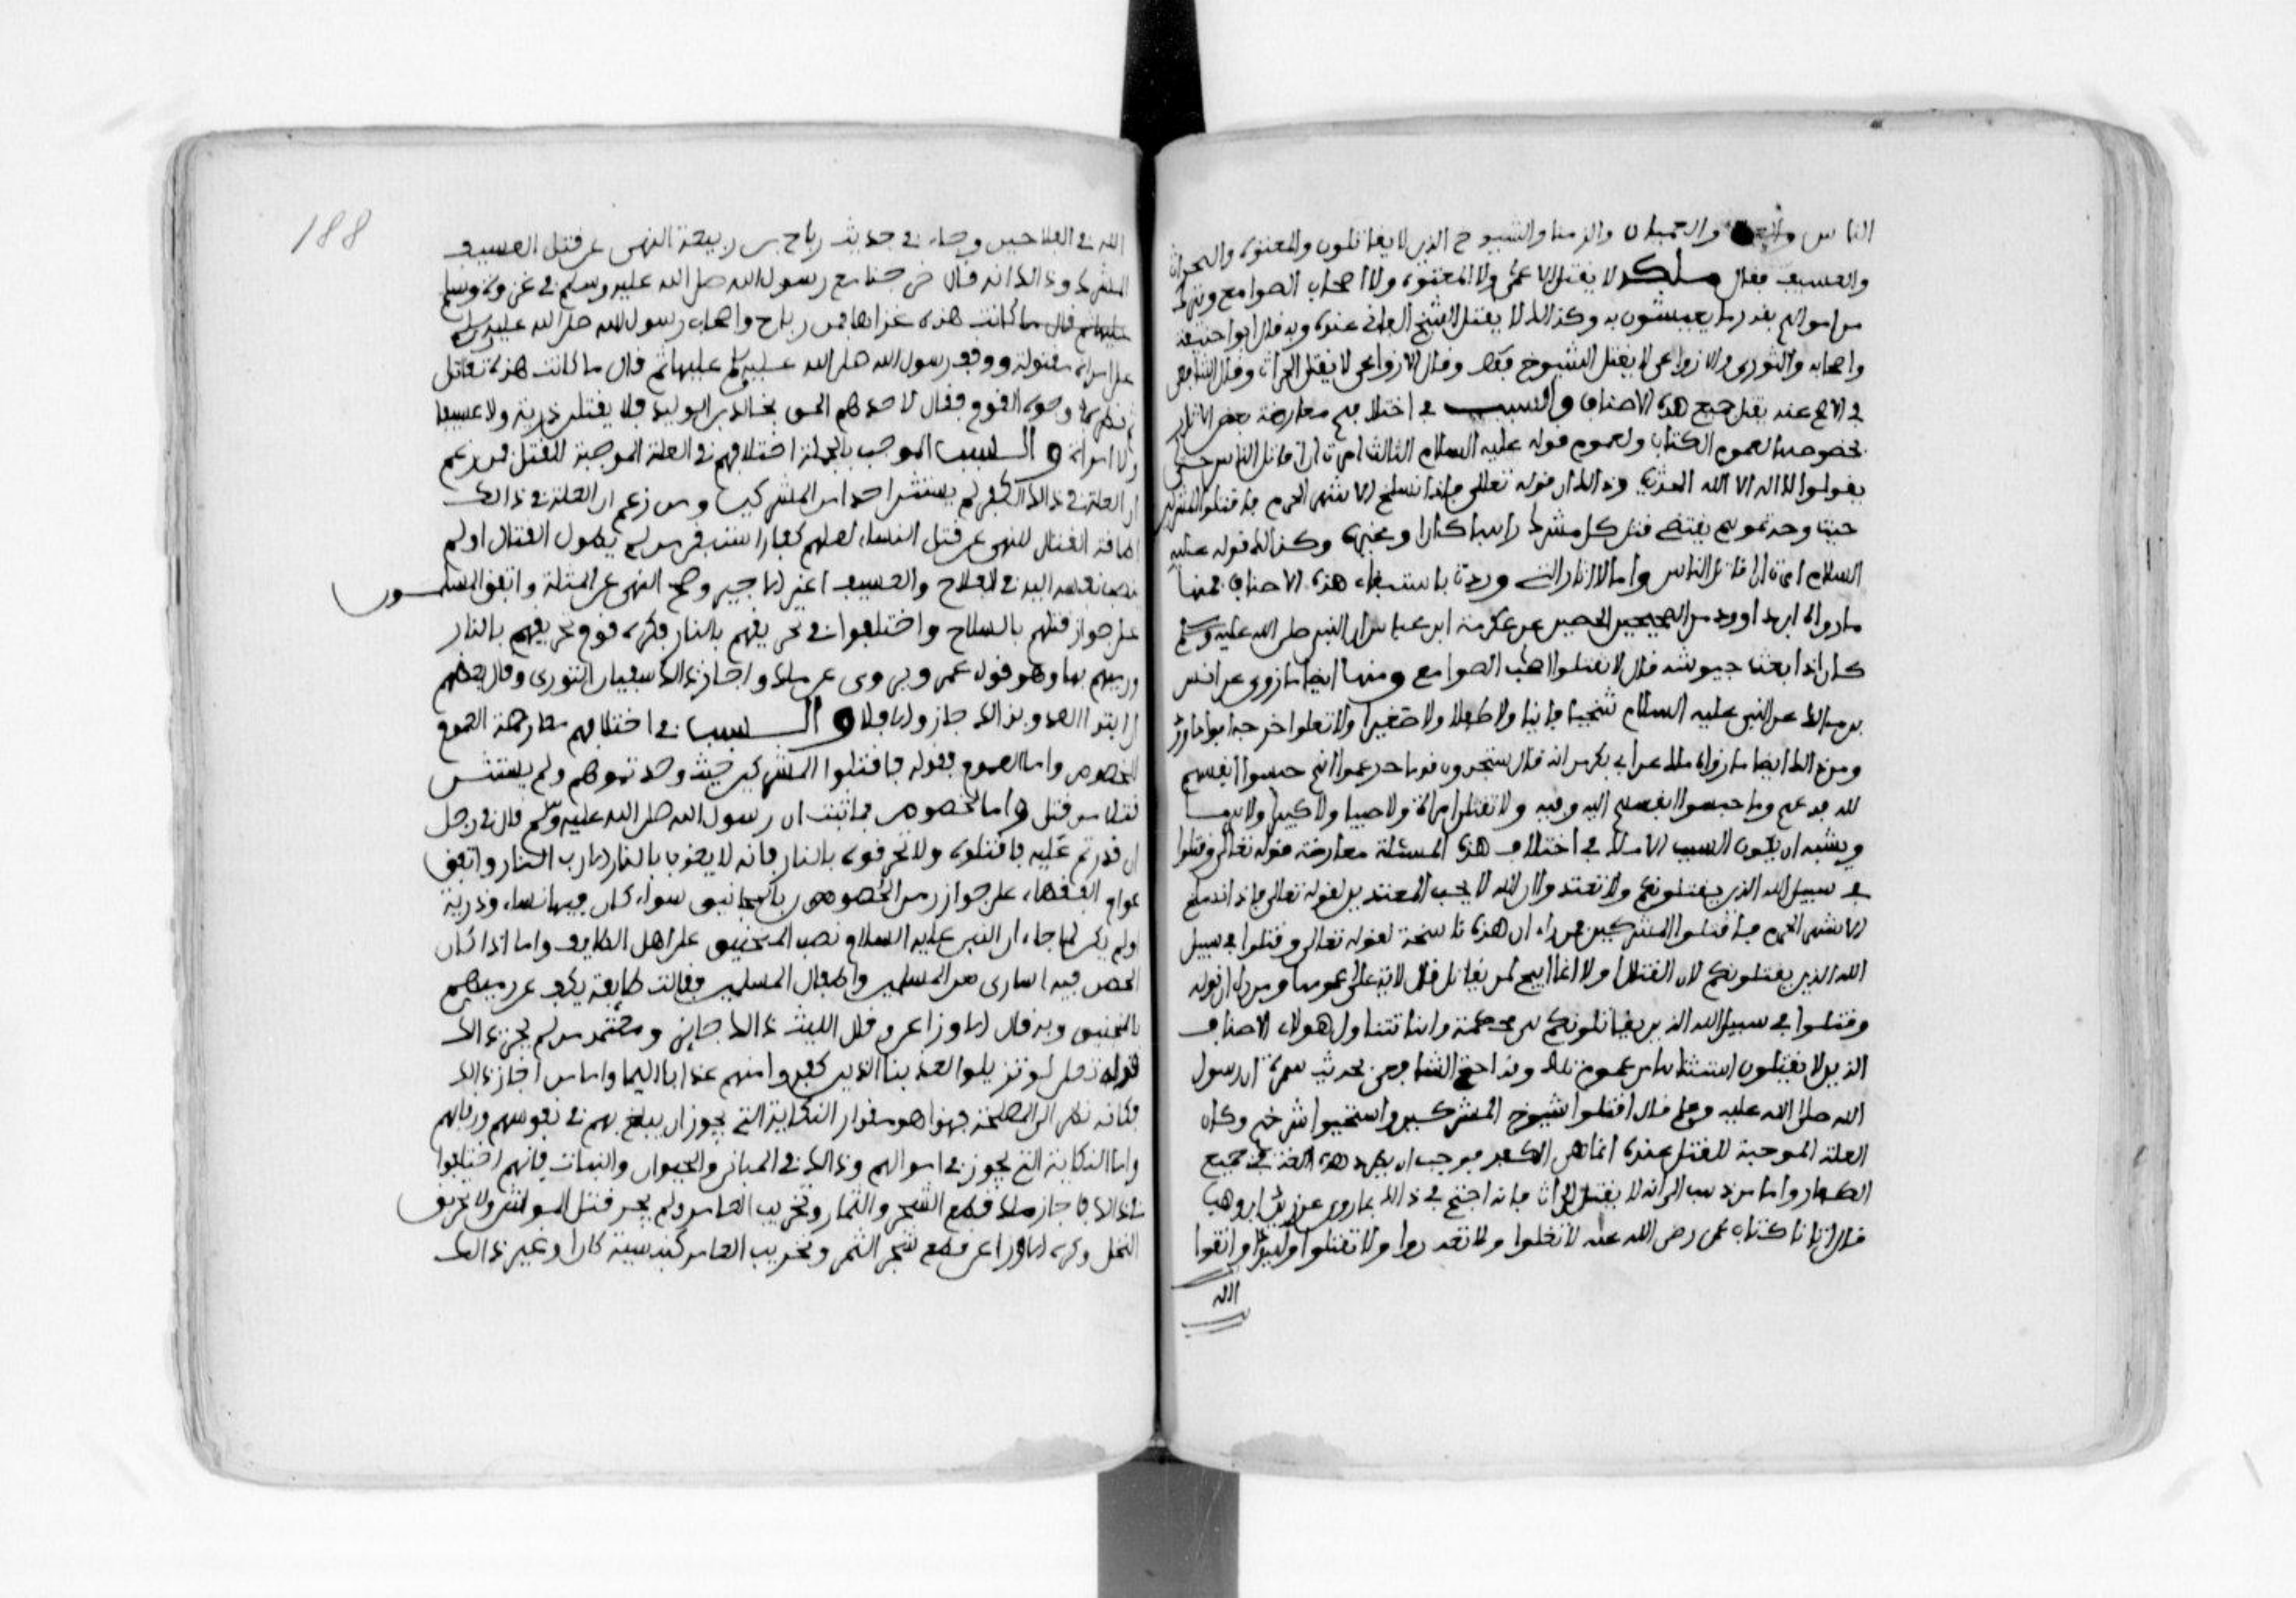 الناس والعميان والزمنا والشيوخ الذين لا يقاتلون والمعتوه والحراث
والعسيف فقال ملك لا يقتل الاعمى ولا المعتوه ولا اصحاب الصوامع ويترك
من اموالهم بقدر ما يعيشون به وكذالك لا يقتل الشيخ الفانى عنده وبه قال ابوا حنيفة
واصحابه والثورى والاوزاعى لا يقتل الشيوخ فقط وقال الاوزاعى لا يقتل الحراث وقال الشافعى
فى الاصح عنه يقتل جميع هذه الاصناف والسبب فى اختلافهم معارضة بعض الاثار
بخصوصها لعموم الكتاب ولعموم قوله عليه السلام الثالث امرت ان اقاتل الناس حتى
يقولوا لا اله الا الله الحديث وذالك ان قوله تعالى فاذا انسلخ الاشهر الحرم فاقتلوا المشركين
حيث وجدتموهم يقتضى قتل كل مشرك راهبا كان او غيره وكذالك قوله عليه
السلام امرت ان اقاتل الناس واما الاثار التى وردت باستبقاء هذه الاصناف فمنها
ما رواه ابو داوود من الحصين عن عكرمة ابن عباس ان النبى صلى الله عليه وسلم
كان اذا بعث جيوشه قال لا تقتلوا اصحاب الصوامع ومنها ايضا ما روى عن انس
بن مالك عن النبى عليه السلام شيخا فانيا ولا طفلا ولا صغيرا ولا تغلوا خرجه ابوا داوود
ومن ذالك ايضا ما رواه ملك عن ابى بكر انه قال ستجدون قوما زعموا انهم حبسوا انفسهم
لله فدعهم وما حبسوا انفسهم اليه وفيه ولا تقتلن امراة ولا صبيا ولا كبيرا ولا هرما
ويشبه ان يكون السبب الاملك فى اختلاف هذه المسئلة معارضة قوله تعالى وقتلوا
فى سبيل الله الذين يقتلونكم ولا تعتدوا ان الله لا يحب المعتدين لقوله تعالى فاذا انسلخ
الاشهر الحرم فاقتلوا المشركين فمن راء ان هذه ناسخة لقوله تعالى وقتلوا فى سبيل
الله الذين يقتلونكم لان القتال اولا انما ابيح لمن يقاتل قال الاية على عمومها ومن راى ان قوله
وقتلوا فى سبيل الله الذين يقاتلونكم هى محكمة وانها تتناول هولاء الاصناف
الذين لا يقتلون استثناها من عموم تلك وقد احتج الشافعى بحديث سمرة ان رسول
الله صلى الله عليه وسلم قال اقتلوا شيوخ المشركين واستحيوا شرخهم وكان
العلة الموجبة للقتل عنده انما هى الكفر فوجب ان تطرد هذه العلة فى جميع
الكفار واما من ذهب الى انه لا يقتل الحراث فانه احتج فى ذالك بما روى عن زيد ابن وهب
قال اتانا كتاب عمر رضى الله عنه لا تغلوا ولا تغدروا ولا تقتلوا وليدا واتقوا
الله
188
الله فى الفلاحين وجاء فى حديث رباح بن ربيعة النهى عن قتل العسيف
المشرك وذالك انه قال خرجنا مع رسول الله صلى الله عليه وسلم فى غزوة
قال ما كانت هذه غزاها فمر رباح واصحاب رسول الله صلى الله عليه وسلم
على امراة مقتولة ووقف رسول الله صلى الله عليه وسلم عليها ثم قال ما كانت هذه تقاتل
ثم نظر فى وجوه القوم فقال لاحدهم الحق بخالد بن الوليد فلا يقتلن ذرية ولا عسيفا
ولا امراة والسبب الموجب بالجملة اختلافهم فى العلة الموجبة للقتل فمن زعم
ان العلة فى ذالك الكفر لم يستثن احدا من المشركين ومن زعم ان العلة فى ذالك
اطاقة القتال للنهى عن قتل النساء لعلهم كفارا استثنى من لم يطق القتال او لم
ينصب نفسه اليه فى الفلاح والعسيف اعنى الاجير وصح النهى عن المثلة واتفق المسلمون
على جواز قتلهم بالسلاح واختلفوا فى تحريقهم بالنار فكره قوم تحريقهم بالنار
ورميهم بها وهو قول عمر ويروى عن ملك واجاز ذالك سفيان الثورى وقال بعضهم
ان ابتدا العدو بذالك جاز والا فلا والسبب فى اختلافهم معارضة العموم
الخصوص واما العموم فقوله فاقتلوا المشركين حيث وجدتموهم ولم يستثن
قتلا من قتل واما الخصوص فما ثبت ان رسول الله صلى الله عليه وسلم قال فى رجل
ان قدرتم عليه فاقتلوه ولا تحرقوه بالنار فانه لا يعذب بالنار الا رب النار واتفق
عوام الفقهاء على جواز رمى الحصون بالمجانيق سواء كان فيها نساء وذرية
او لم يكن لما جاء ان النبى عليه السلام نصب المنجنيق على اهل الطايف واما اذا كان
الحصن فيه اسارى من المسلمين واطفال المسلمين فقالت طايفة يكف عن رميهم
بالمنجنيق وبه قال الاوزاعى وقال الليث ذالك جايز ومعتمد من لم يجز ذالك
قوله تعلى لو تزيلوا لعذبنا الذين كفروا منهم عذابا اليما واما من اجاز ذالك
فكانه نظر الى المصلحة فهذا هو مقدار النكاية التى يجوز ان يبلغ بهم فى نفوسهم ورقابهم
واما النكاية التى تجوز فى اموالهم وذالك فى المبانى والحيوان والنبات فانهم اختلفوا
فى ذالك فاجاز ملك قطع الشجر والثمار وتخريب العامر ولم يجز قتل المواشى ولا تحريق
النخل وكره الاوزاعى قطع شجر الثمر وتخريب العامر كنيسة كان او غير ذالك